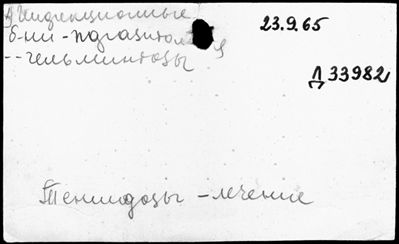 Инфекционные
б-ни - паразитол
-- гельминтозы
23.9.65
Д 33982
Тениидозы - лечение